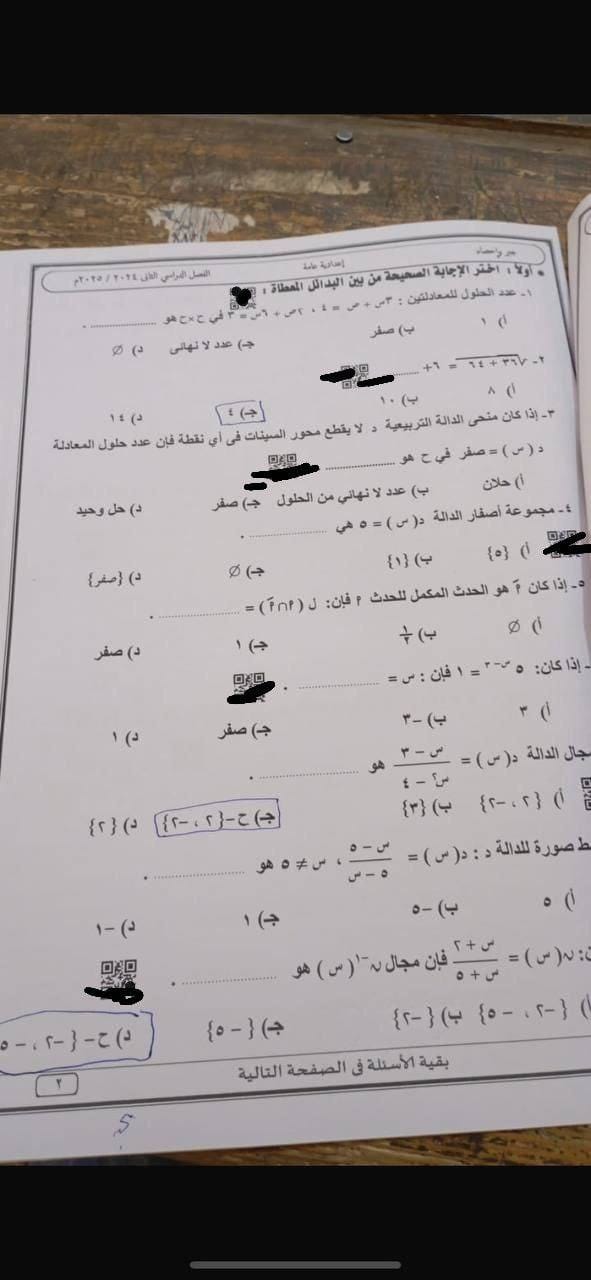 جبر وإحصاء إعدادية عامة الفصل الدراسي الثاني ٢٠٢٤ / ٢٠٢٥م
* أولاً : اختر الإجابة الصحيحة من بين البدائل المعطاة :
١- عدد الحلول للمعادلتين : ٣س + ص = ٤ ، ٢ص + ٦س = ٣ في ح×ح هو ............ .
أ) ١ ب) صفر جـ) عدد لا نهائى د) ∅
٢- √٣٦ + ٦٤ = ٦ + ............
أ) ٨ ب) ١٠ جـ) ٤ د) ١٤
٣- إذا كان منحنى الدالة التربيعية د لا يقطع محور السينات فى أي نقطة فإن عدد حلول المعادلة
د ( س ) = صفر في ح هو ............
أ) حلان ب) عدد لا نهائي من الحلول جـ) صفر د) حل وحيد
٤- مجموعة أصفار الدالة د( س ) = ٥ هي ............ .
أ) {٥} ب) {١} جـ) ∅ د) {صفر}
٥- إذا كان أَ هو الحدث المكمل للحدث أ فإن: ل ( أ ∩ أَ ) = ............ .
أ) ∅ ب) ١/٢ جـ) ١ د) صفر
- إذا كان: ٥^(س-٣) = ١ فإن : س = ............ .
أ) ٣ ب) -٣ جـ) صفر د) ١
جال الدالة د( س ) = (س - ٣)/(س² - ٤) هو ............ .
أ) {٢ ، -٢} ب) {٣} جـ) ح - {٢ ، -٢} د) {٢}
ط صورة للدالة د : د( س ) = (س - ٥)/(٥ - س) ، س ≠ ٥ هو ............ .
أ) ٥ ب) -٥ جـ) ١ د) -١
ن: ن( س ) = (س + ٢)/(س + ٥) فإن مجال ن⁻¹( س ) هو ............ .
أ) {-٢ ، -٥} ب) {-٢} جـ) {-٥} د) ح - {-٢ ، -٥
بقية الأسئلة فى الصفحة التالية
٢